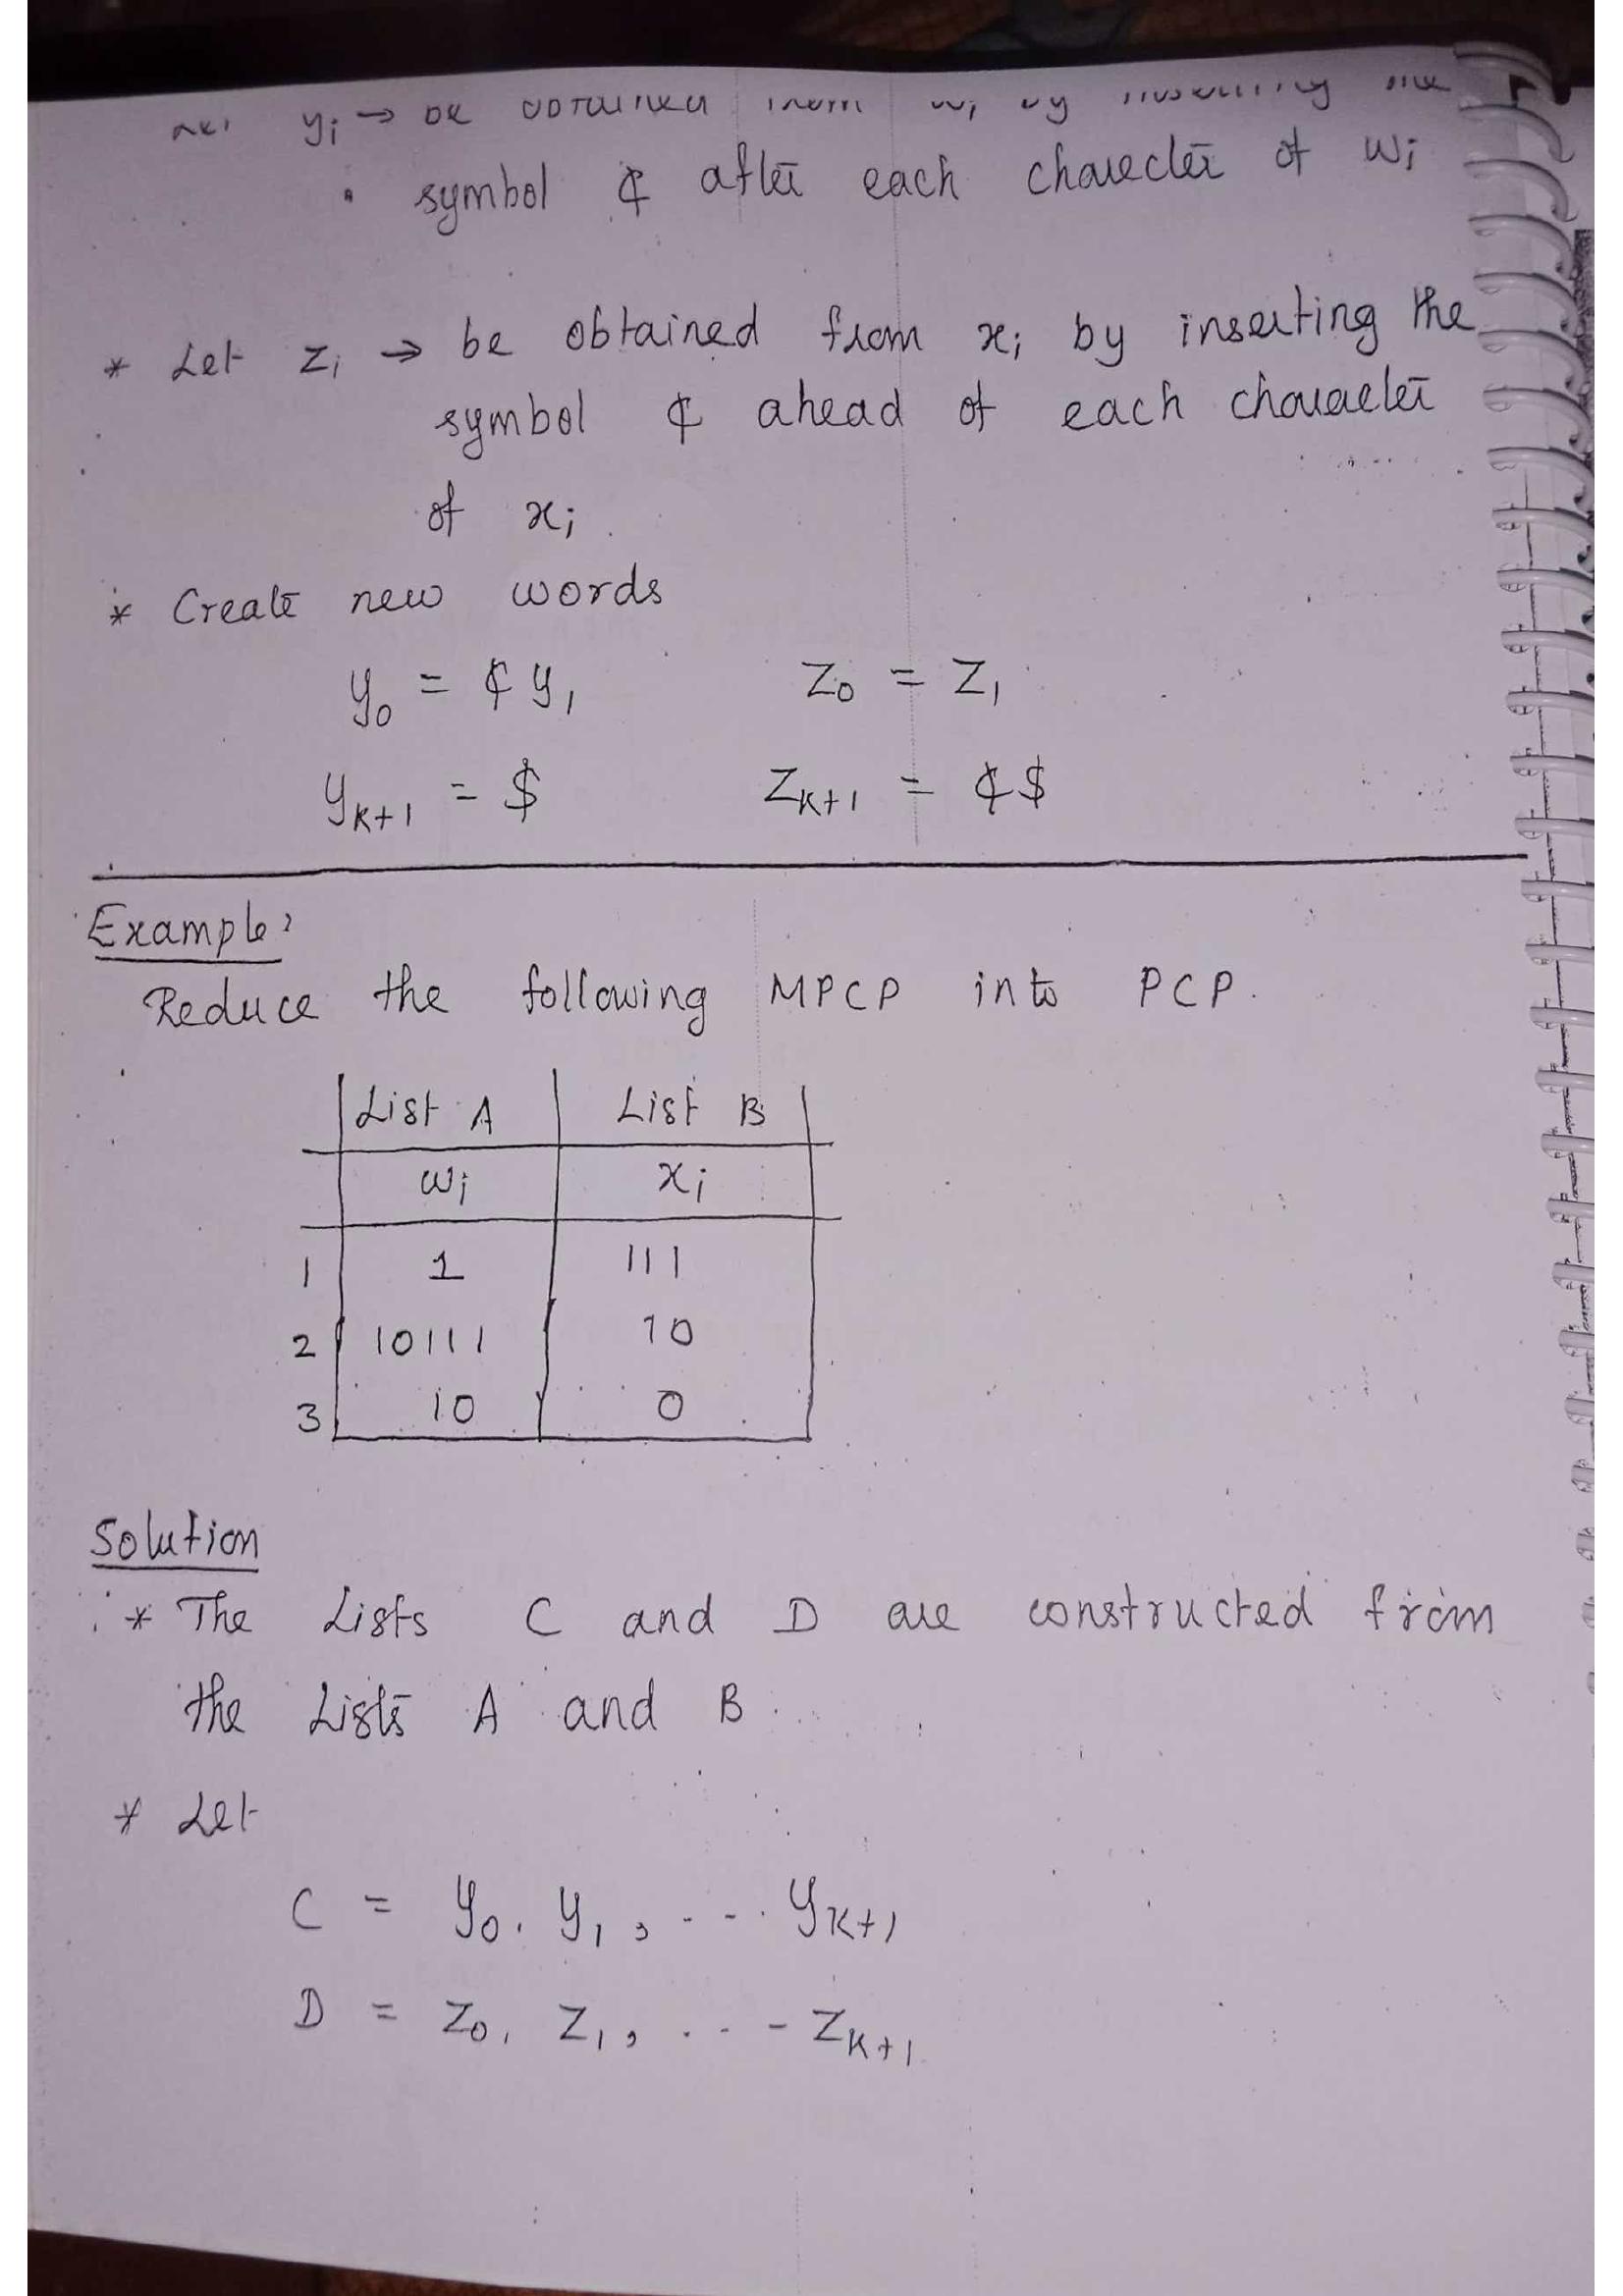 Let yi → be obtained from wi by inserting the
symbol ¢ after each character of wi
* Let zi → be obtained from xi by inserting the
symbol ¢ ahead of each character
of xi.
* Create new words
y0 = ¢ y1 z0 = z1
yk+1 = $ zk+1 = ¢$
Example:
Reduce the following MPCP into PCP.
List A List B
wi xi
1 1 111
2 10111 10
3 10 0
Solution
* The Lists C and D are constructed from
the Lists A and B.
* Let
C = y0, y1, ... yk+1
D = z0, z1, ... zk+1